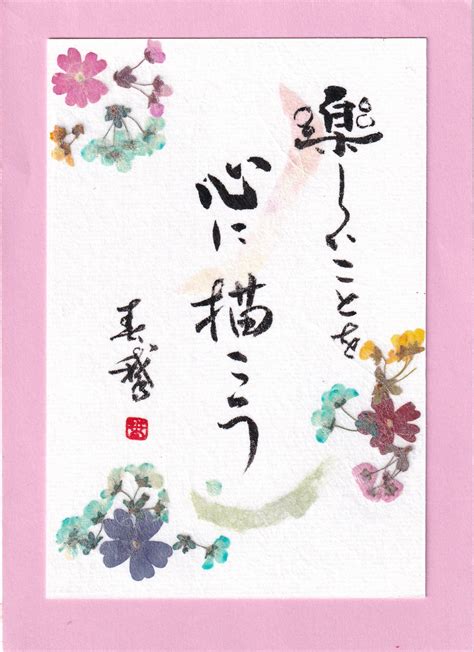 楽しいことを
心に描こう